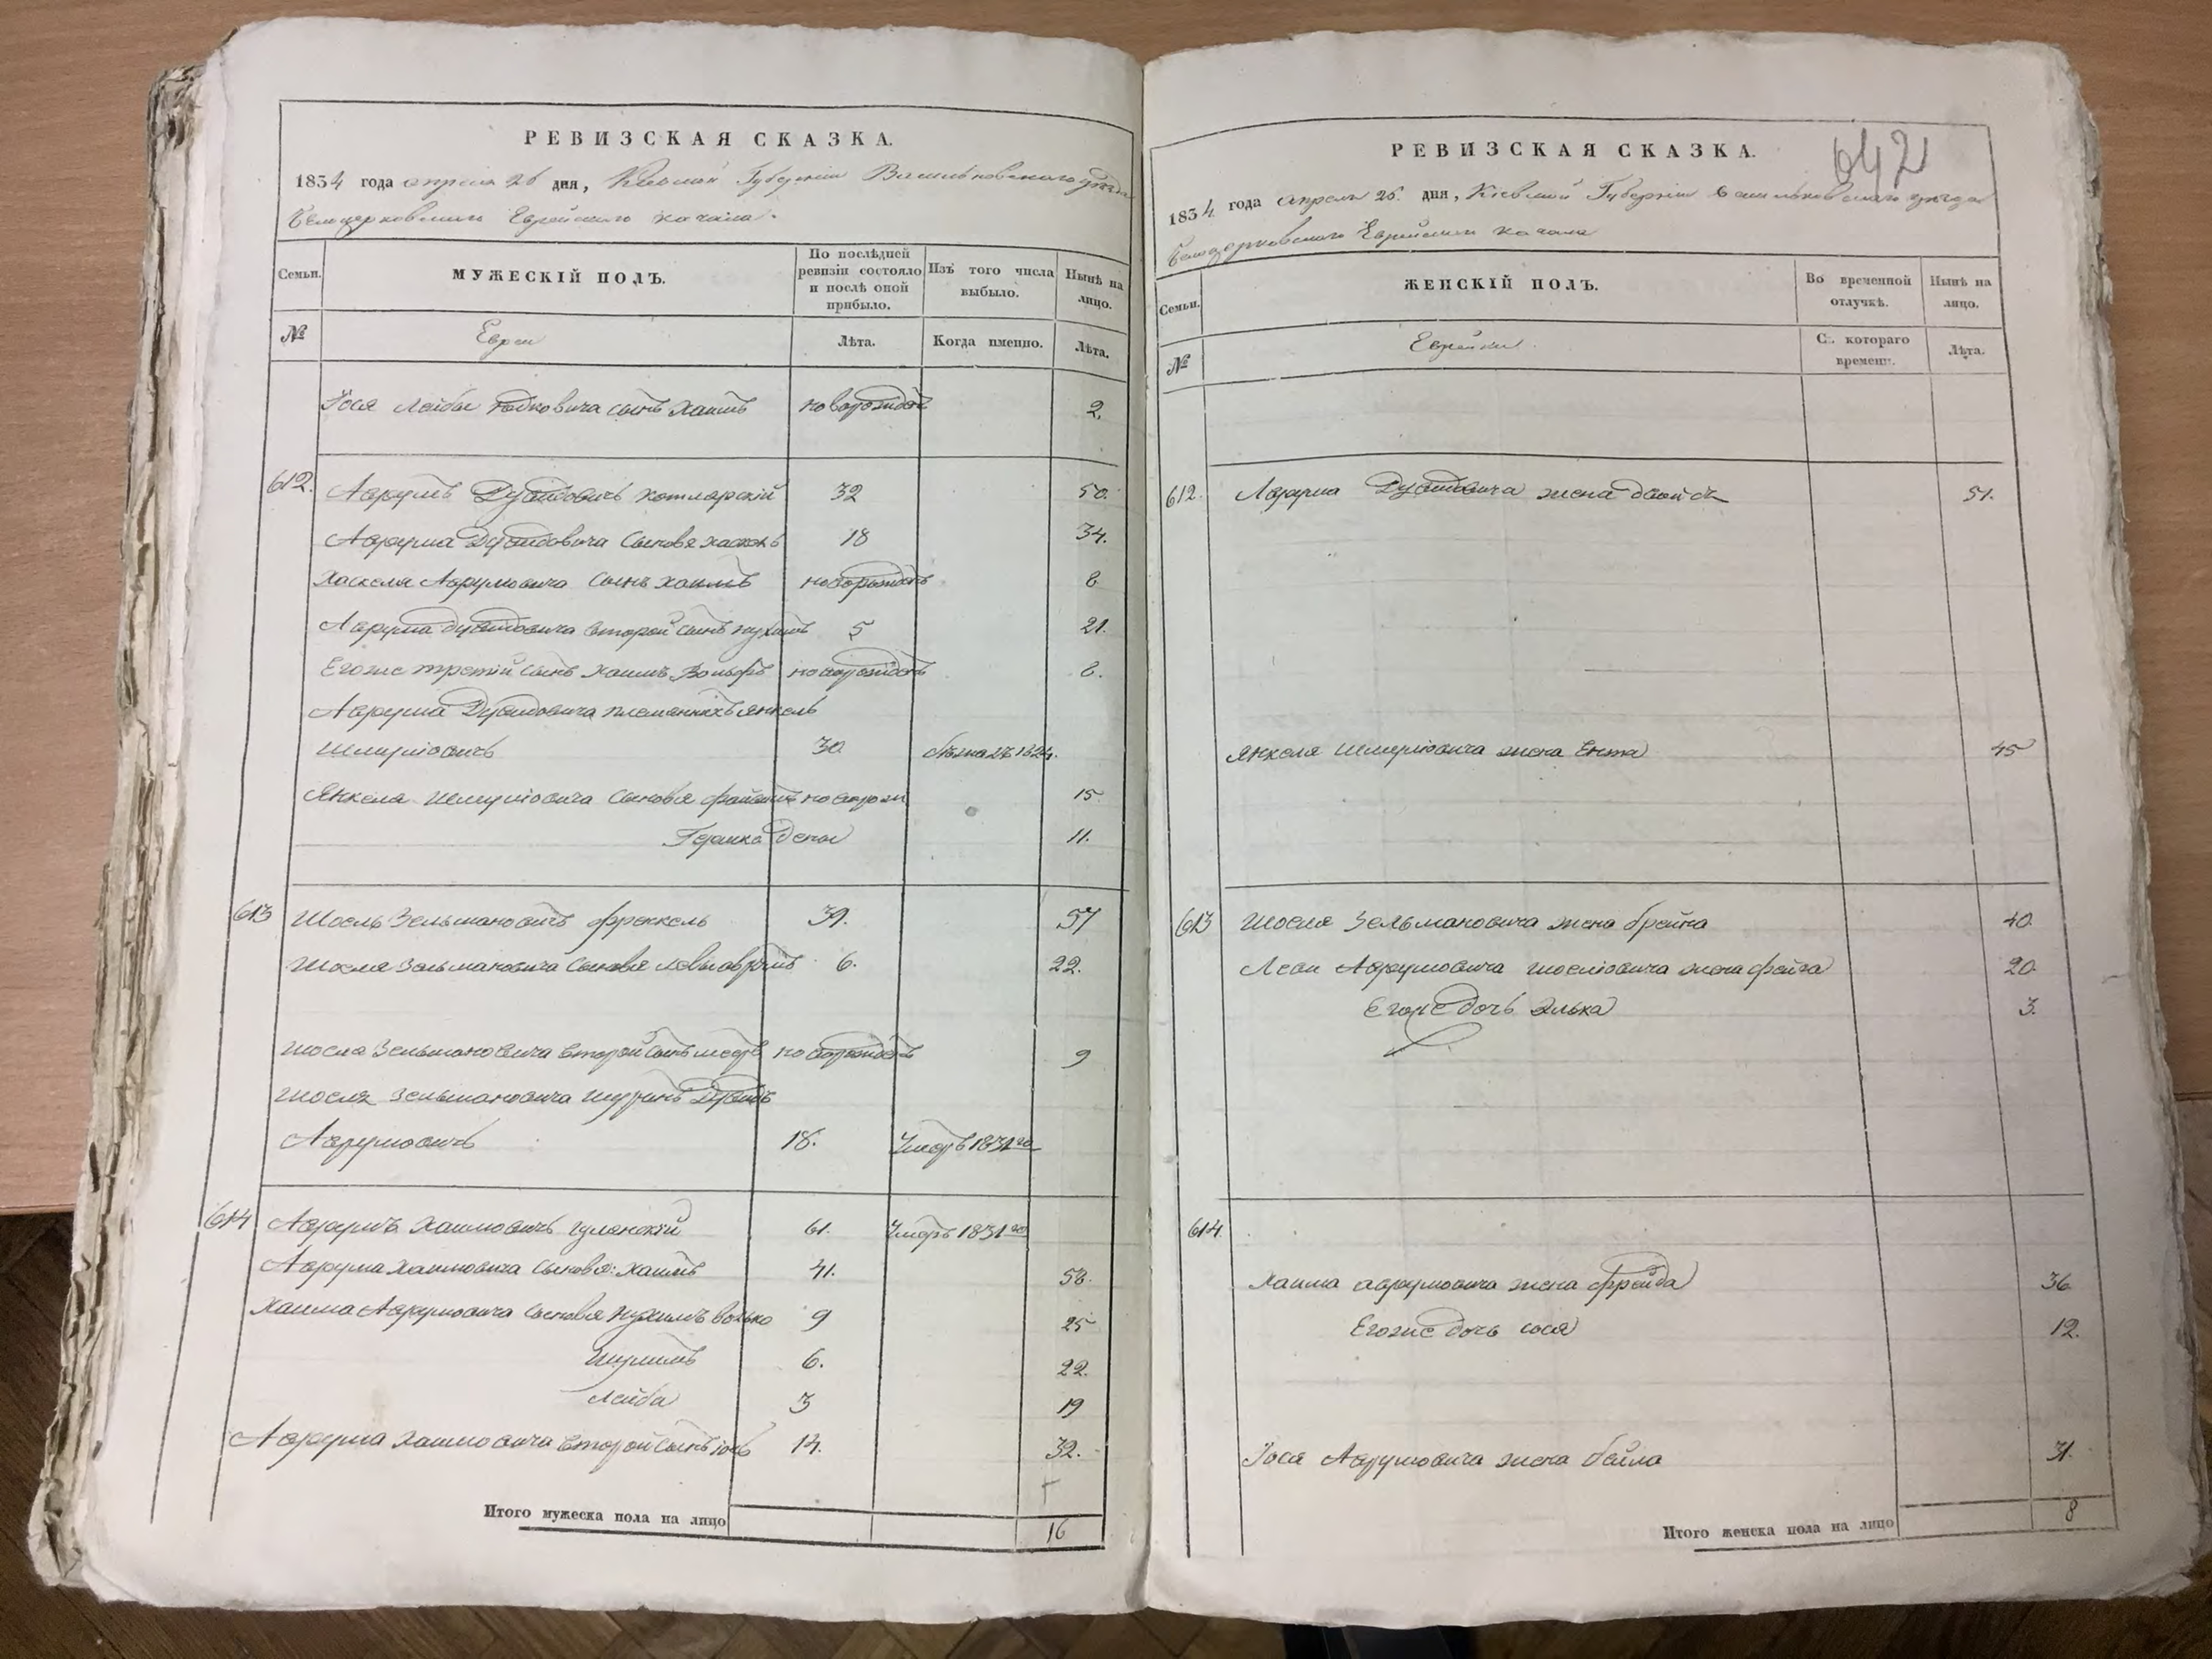 РЕВИЗСКАЯ СКАЗКА.
1834 года апреля 26 дня, Киевской Губернии Васильковского уезда
Белоцерковского Еврейского кагала.
Семьи.
МУЖЕСКІЙ ПОЛЪ.
По послѣдней ревизіи состояло и послѣ оной прибыло.
Изъ того числа выбыло.
Нынѣ на лицо.
№
Евреи
Лѣта.
Когда именно.
Лѣта.
Іося Лейбы сынъ Хаимъ новорожден 2.
612. Аврумъ Дувидовичъ Котлярскій 32 50.
Аврума Дувидовича Сыновя Хаскель 18 34.
Хаскеля Аврумовича Сынъ Хаимъ новорожденъ 8
Аврума Дувидовича второй сынъ Нухимъ 5 21.
Егоже третій сынъ Хаимъ Вольфъ новорожденъ 8.
Аврума Дувидовича племянникъ Янкель
Шмулiовичъ 30 1824.
Янкеля Шмулiовича Сыновя новорож 15.
Гершко 11.
613 Шоель Зельмановичъ Френкель 39. 57
Шоеля Зельмановича Сыновя Леви Аврумъ 6. 22.
Шоеля Зельмановича второй сынъ новорожденъ 9
Шоеля Зельмановича Шуринъ Дувидъ
Аврумовичъ 18. Умеръ 1831го
614 Аврумъ Хаимовичъ Гулянскій 61. Умеръ 1831го
Аврума Хаимовича Сыновя: Хаимъ 41. 58.
Хаима Аврумовича Сыновя Нухимъ Волько 9 25
Шулимъ 6. 22.
Лейба 3 19
Аврума Хаимовича второй сынъ Іось 14. 32.
Итого мужеска пола на лицо 16
642
РЕВИЗСКАЯ СКАЗКА.
1834 года апреля 26. дня, Кіевской Губерніи Васильковского уезда
Белоцерковского Еврейского кагала
Семьи.
ЖЕНСКІЙ ПОЛЪ.
Во временной отлучкѣ.
Нынѣ на лицо.
№
Еврейки.
Съ котораго времени.
Лѣта.
612. Аврума Дувидовича жена 51.
Янкеля Шмулiовича жена Ента 45
613 Шоеля Зельмановича жена Брейна 40.
Леви Аврумовича Шоелiовича жена Фейга 20.
Егоже дочь Элька 3.
614.
Хаима Аврумовича жена Фрейда 36
Егоже дочь Сося 12.
Іося Аврумовича жена Бейла 31.
Итого женска пола на лицо 8